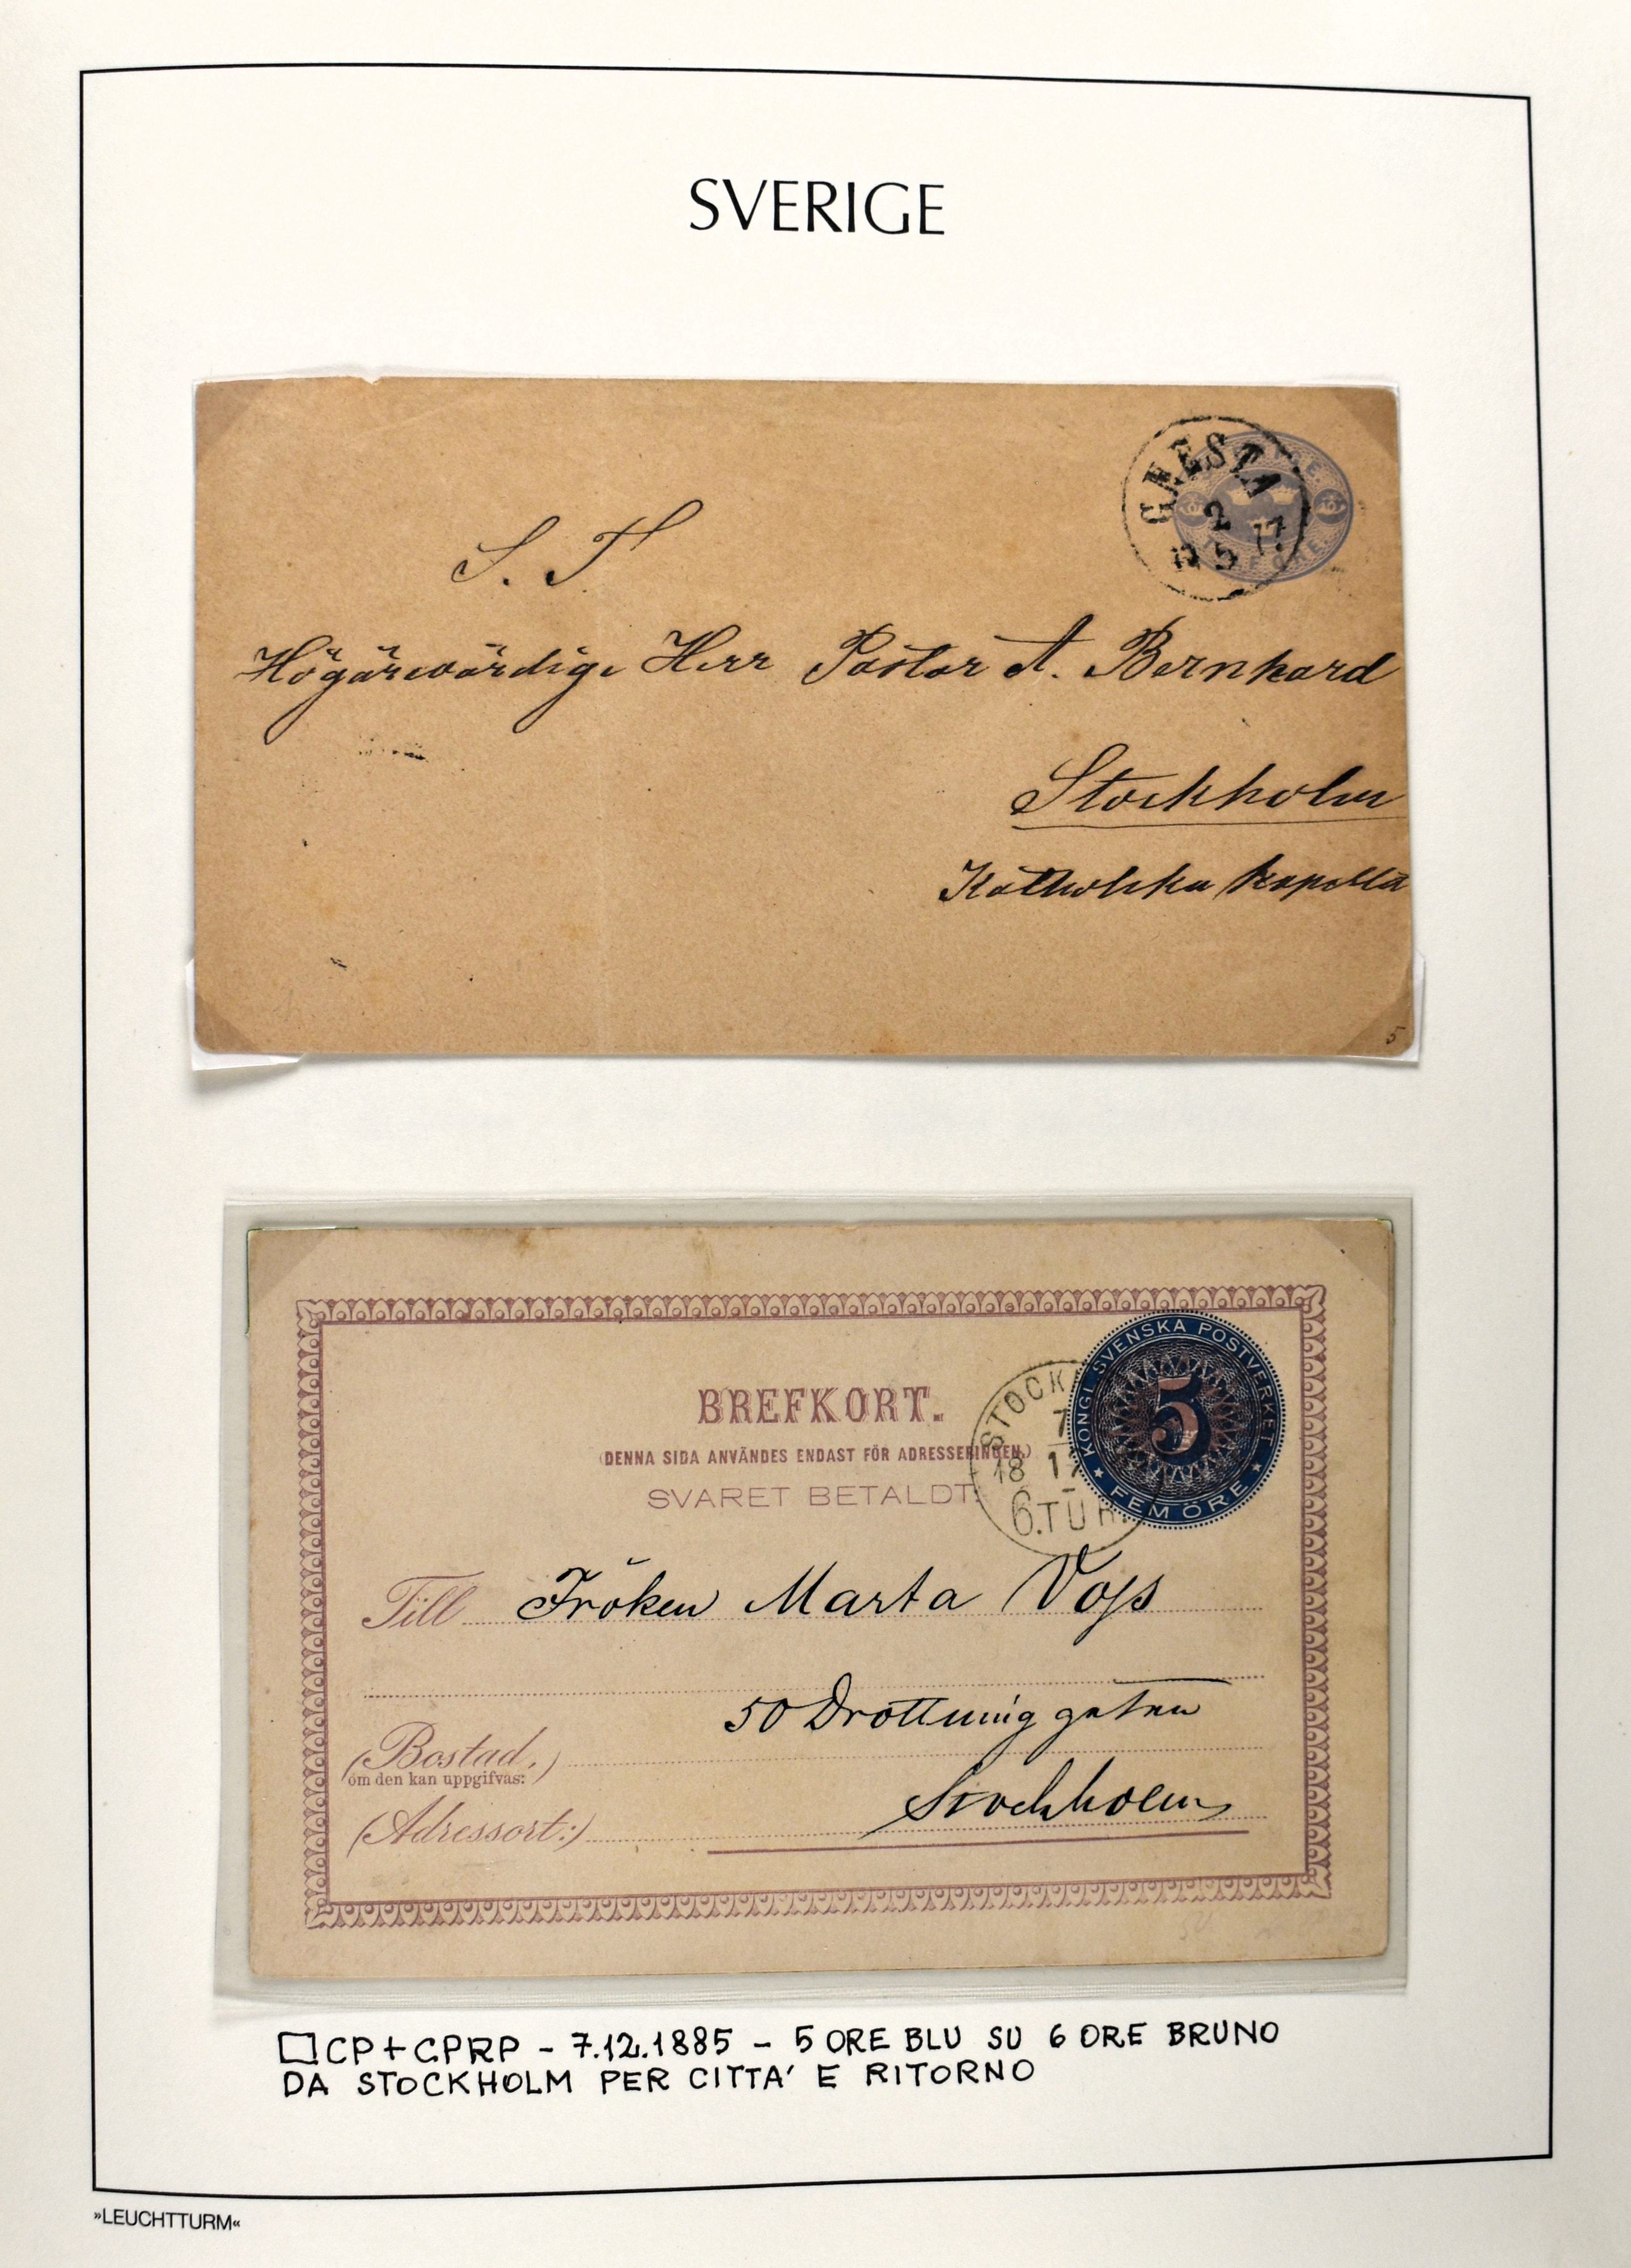 SVERIGE
GNESTA
2
5 77
S. T
Högärevördige Herr Pastor A. Bernhard
Stockholm
Katholska kapella
5
BREFKORT.
(DENNA SIDA ANVÄNDES ENDAST FÖR ADRESSERINGEN.)
SVARET BETALDT.
STOCK
7
18 1
6.TUR
KONGL SVENSKA POSTVERKET
5
FEM ÖRE
Till Fröken Marta Voss
50 Drottninggatan
(Bostad,)
om den kan uppgifvas:
Stockholm
(Adressort:)
CP + CPRP - 7.12.1885 - 5 ORE BLU SU 6 ORE BRUNO
DA STOCKHOLM PER CITTA' E RITORNO
»LEUCHTTURM«